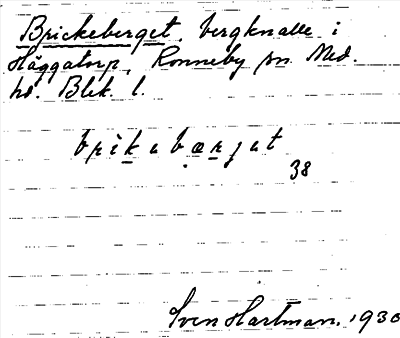 Brickeberget, bergknalle i
Häggatorp, Ronneby sn. Med.
hd. Blek. l.
brìkabærjat
38
Sven Hartman. 1930